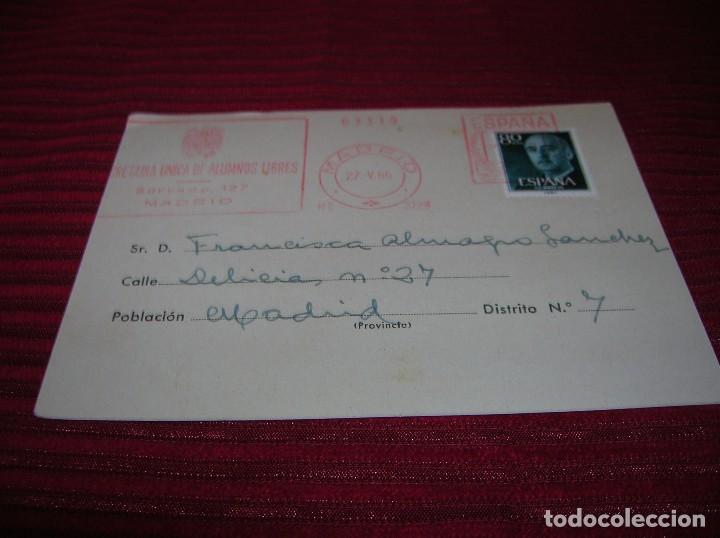 03310
ESPAÑA
SECRETARIA UNICA DE ALUMNOS LIBRES
Serrano, 127
MADRID
MADRID
27.V.66
80
ESPAÑA
Sr. D. Francisca Almagro Sanchez
Calle Delicias nº 27
Población Madrid Distrito N.º 7
(Provincia)
todocoleccion
todocoleccion.net